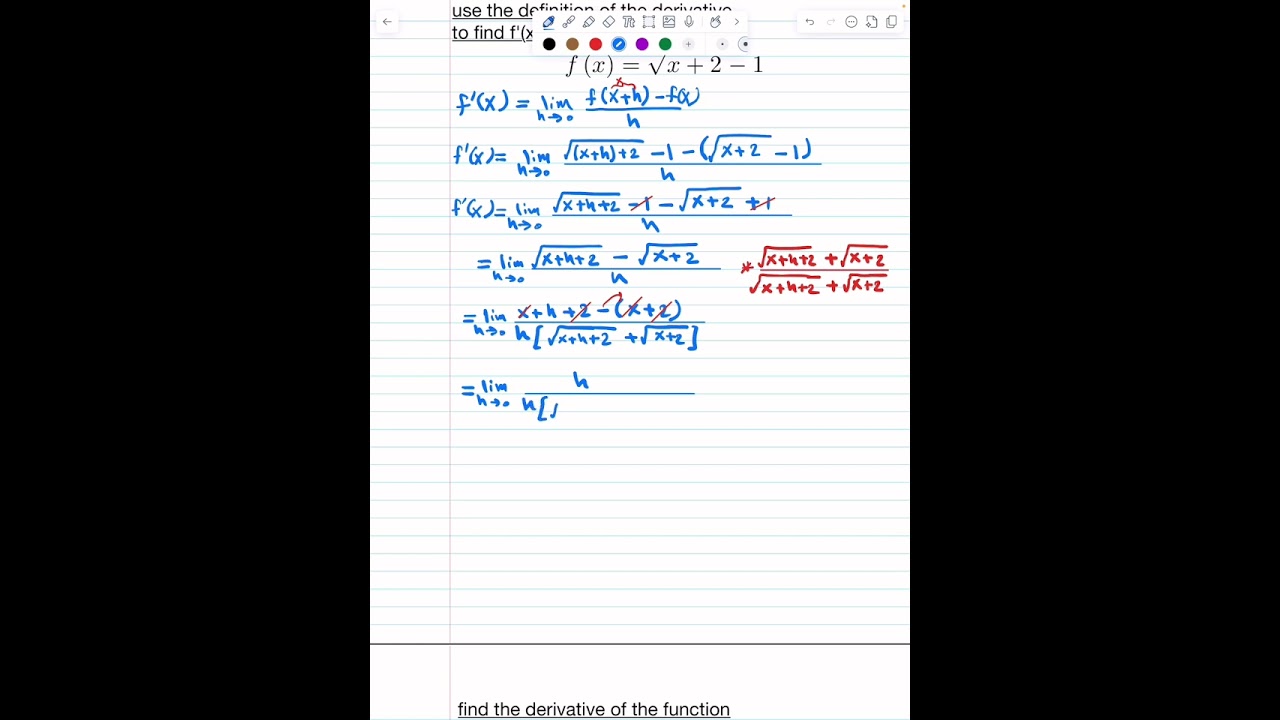 use the definition of the derivative
to find f'(x
Tt
f (x) = √x + 2 − 1
x
f'(x) = lim h→0 f(x+h) − f(x) / h
f'(x) = lim h→0 √(x+h)+2 − 1 − (√x+2 − 1) / h
f'(x) = lim h→0 √x+h+2 − 1 − √x+2 + 1 / h
= lim h→0 √x+h+2 − √x+2 / h * √x+h+2 + √x+2 / √x+h+2 + √x+2
= lim h→0 x+h+2 − (x+2) / h[√x+h+2 + √x+2]
= lim h→0 h / h[√
find the derivative of the function